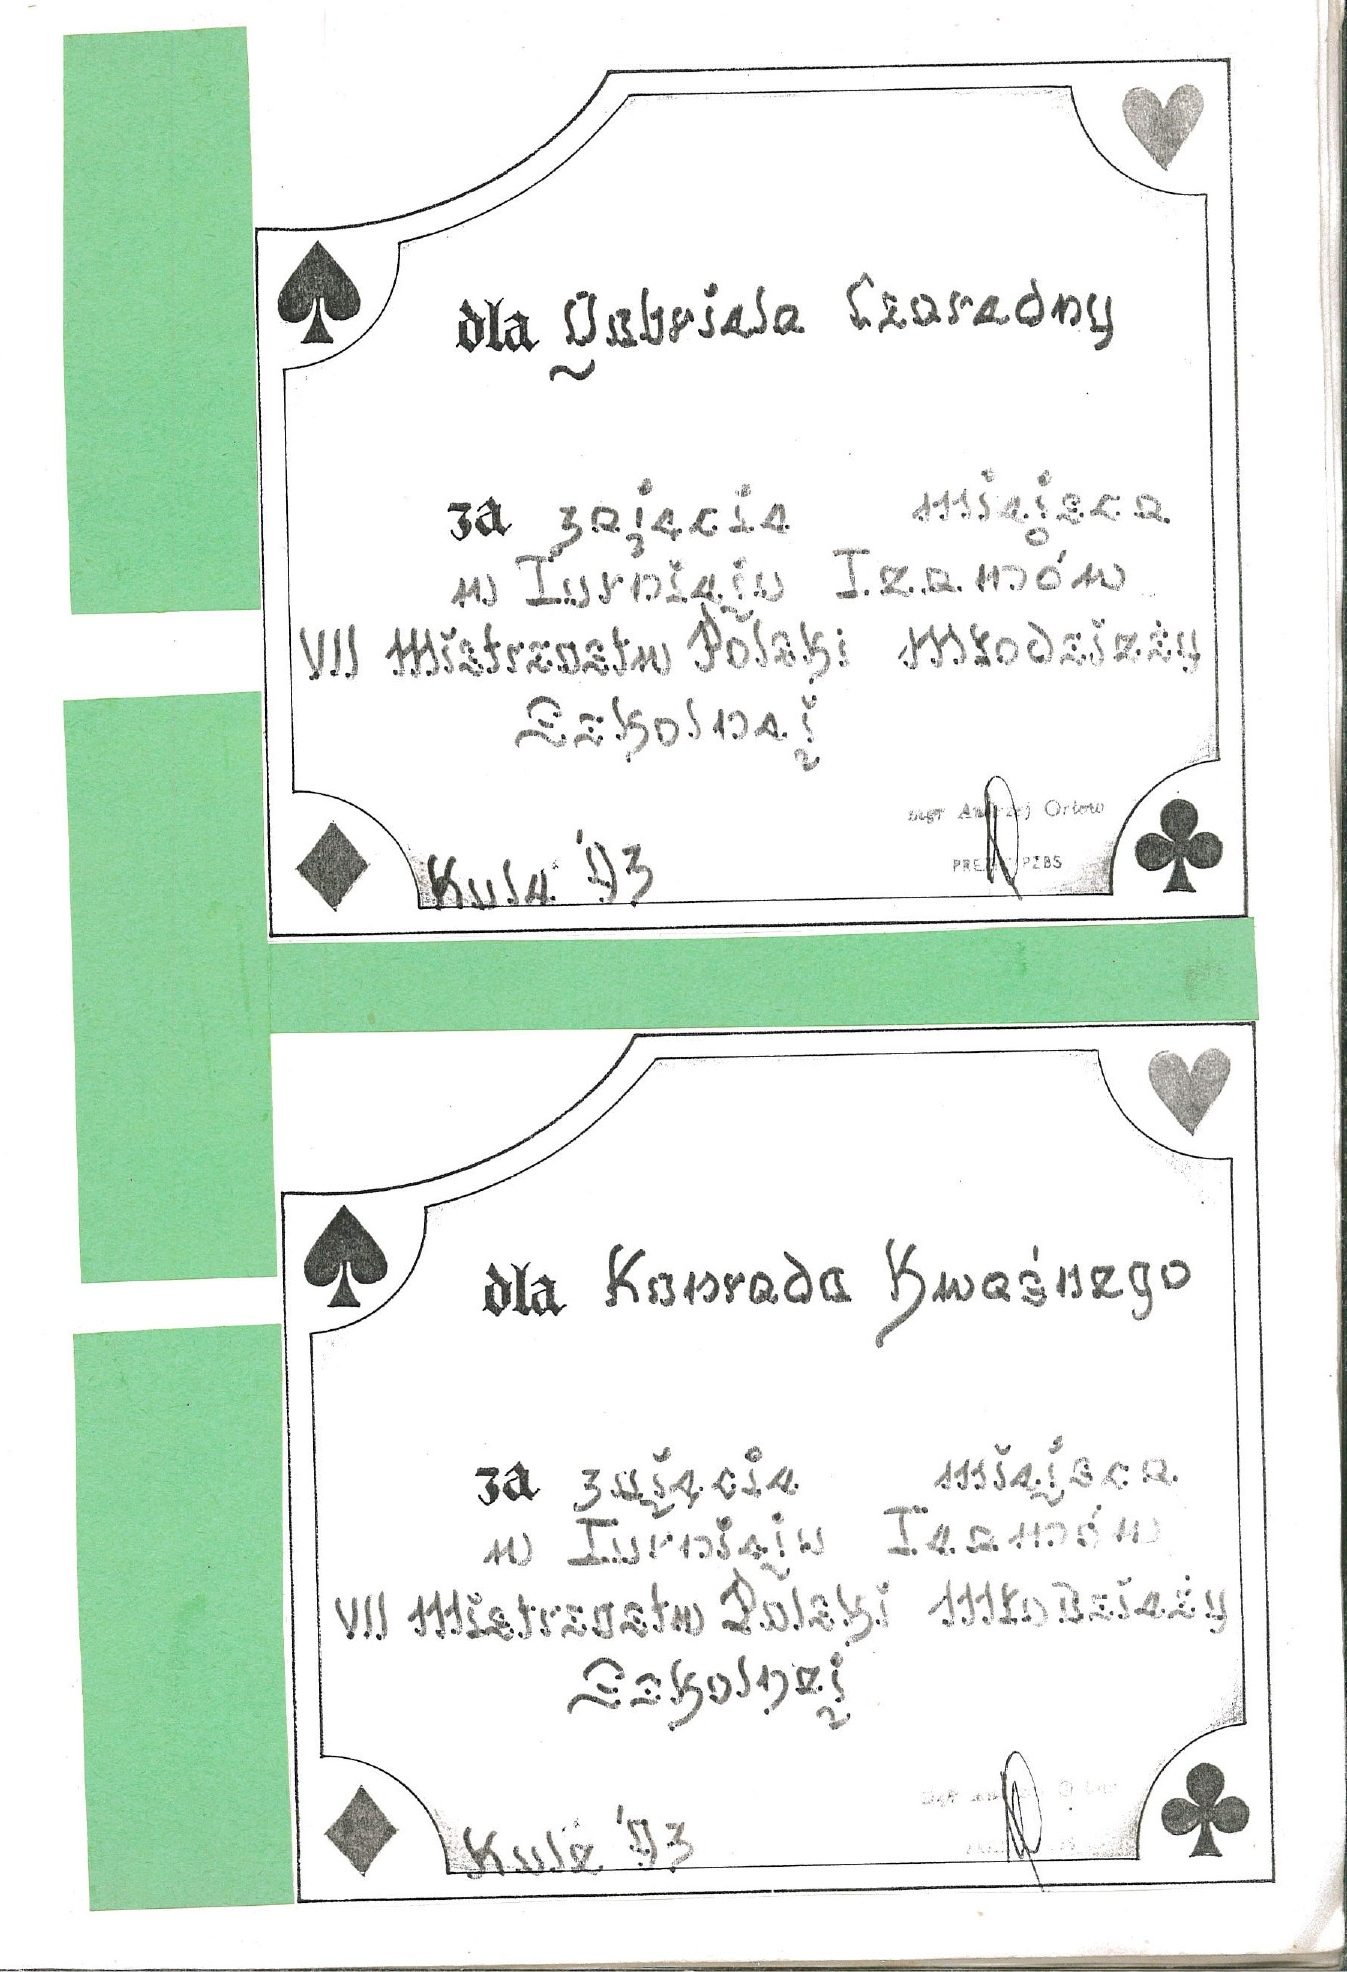 dla Gabriela Czaredny
za zajęcie miejsca
w Turnieju Teamów
VII Mistrzostw Polski Młodzieży
Szkolnej
mgr Andrzej Orłow
PREZES PZBS
Kule '93
dla Konrada Kwaśnego
za zajęcie miejsca
w Turnieju Teamów
VII Mistrzostw Polski Młodzieży
Szkolnej
mgr
Kule '93